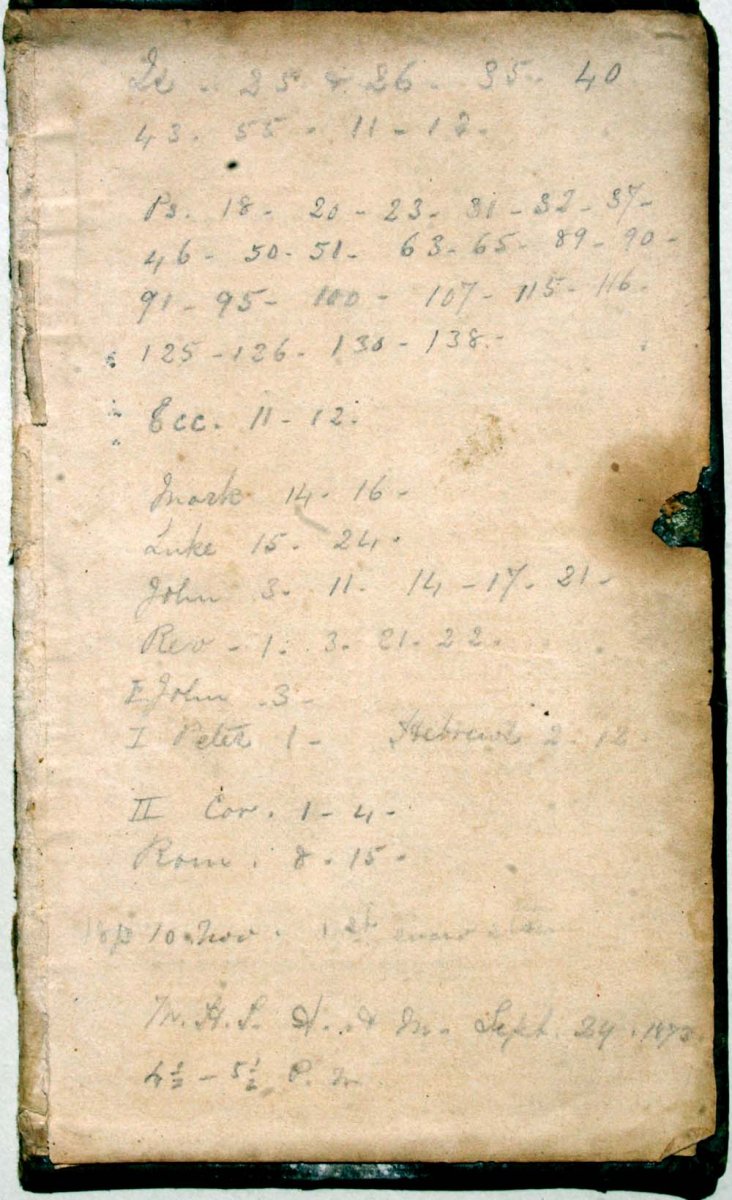 Is - 25 & 26 - 35 - 40
43 - 55 - 11 - 12 -
Ps. 18 - 20 - 23 - 31 - 32 - 37 -
46 - 50 - 51 - 63 - 65 - 89 - 90 -
91 - 95 - 100 - 107 - 115 - 116 -
125 - 126 - 130 - 138 -
Ecc. 11 - 12.
Mark 14 - 16 -
Luke 15 - 24 -
John 3 - 11 - 14 - 17 - 21 -
Rev - 1 - 3 - 21 - 22 -
I John - 3 -
I Peter 1 - Hebrews 2 - 12 -
II Cor. 1 - 4 -
Rom. 8 - 15 -
10 Nov. 1st snow
M. H. S. Sept. 24. 187
4½ - 5½ P. M.